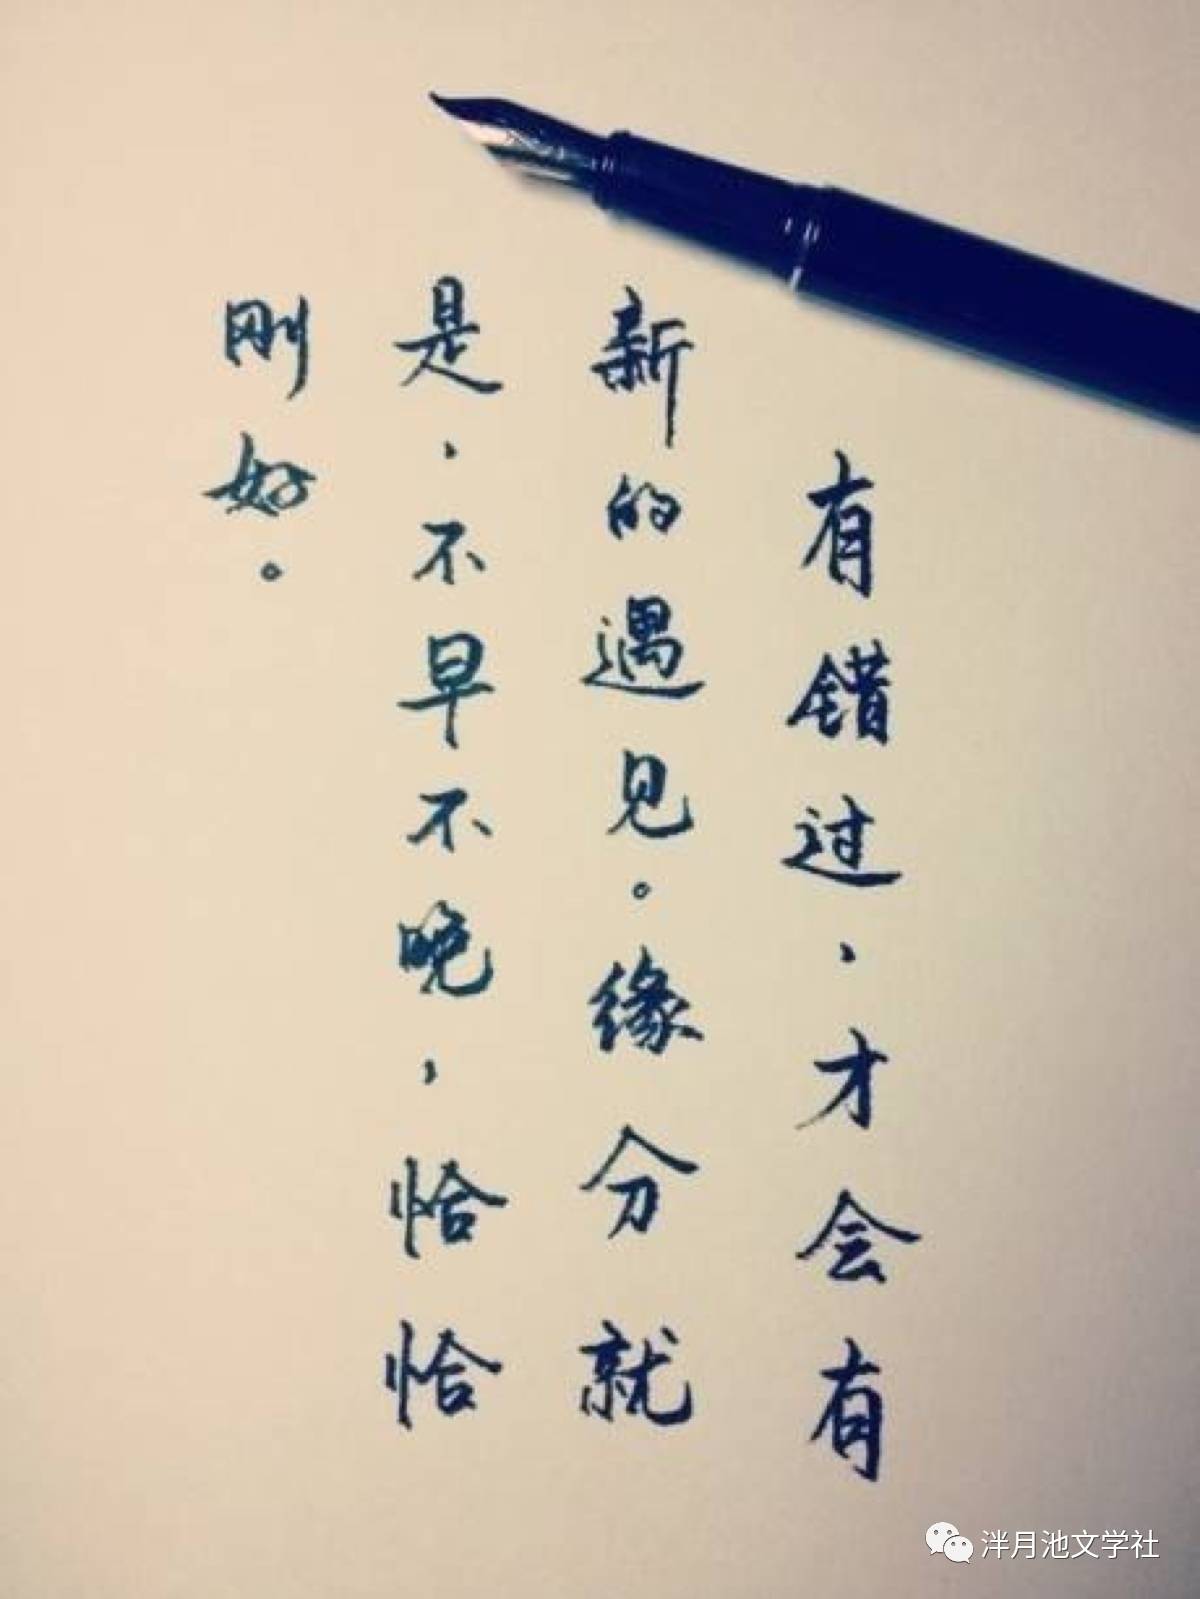 有错过，才会有
新的遇见。缘分就
是，不早不晚，恰恰
刚好。
泮月池文学社